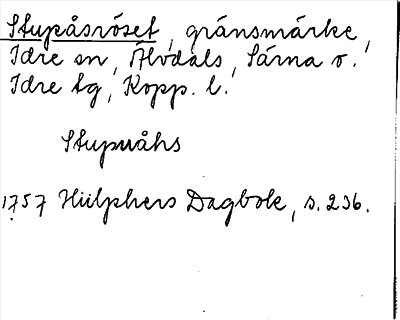 Stupåsröset, gränsmärke,
Idre sn, Älvdals, Särna o.
Idre tg, Kopp. l.
Stupuåhs
1757 Hülphers Dagbok, s. 236.